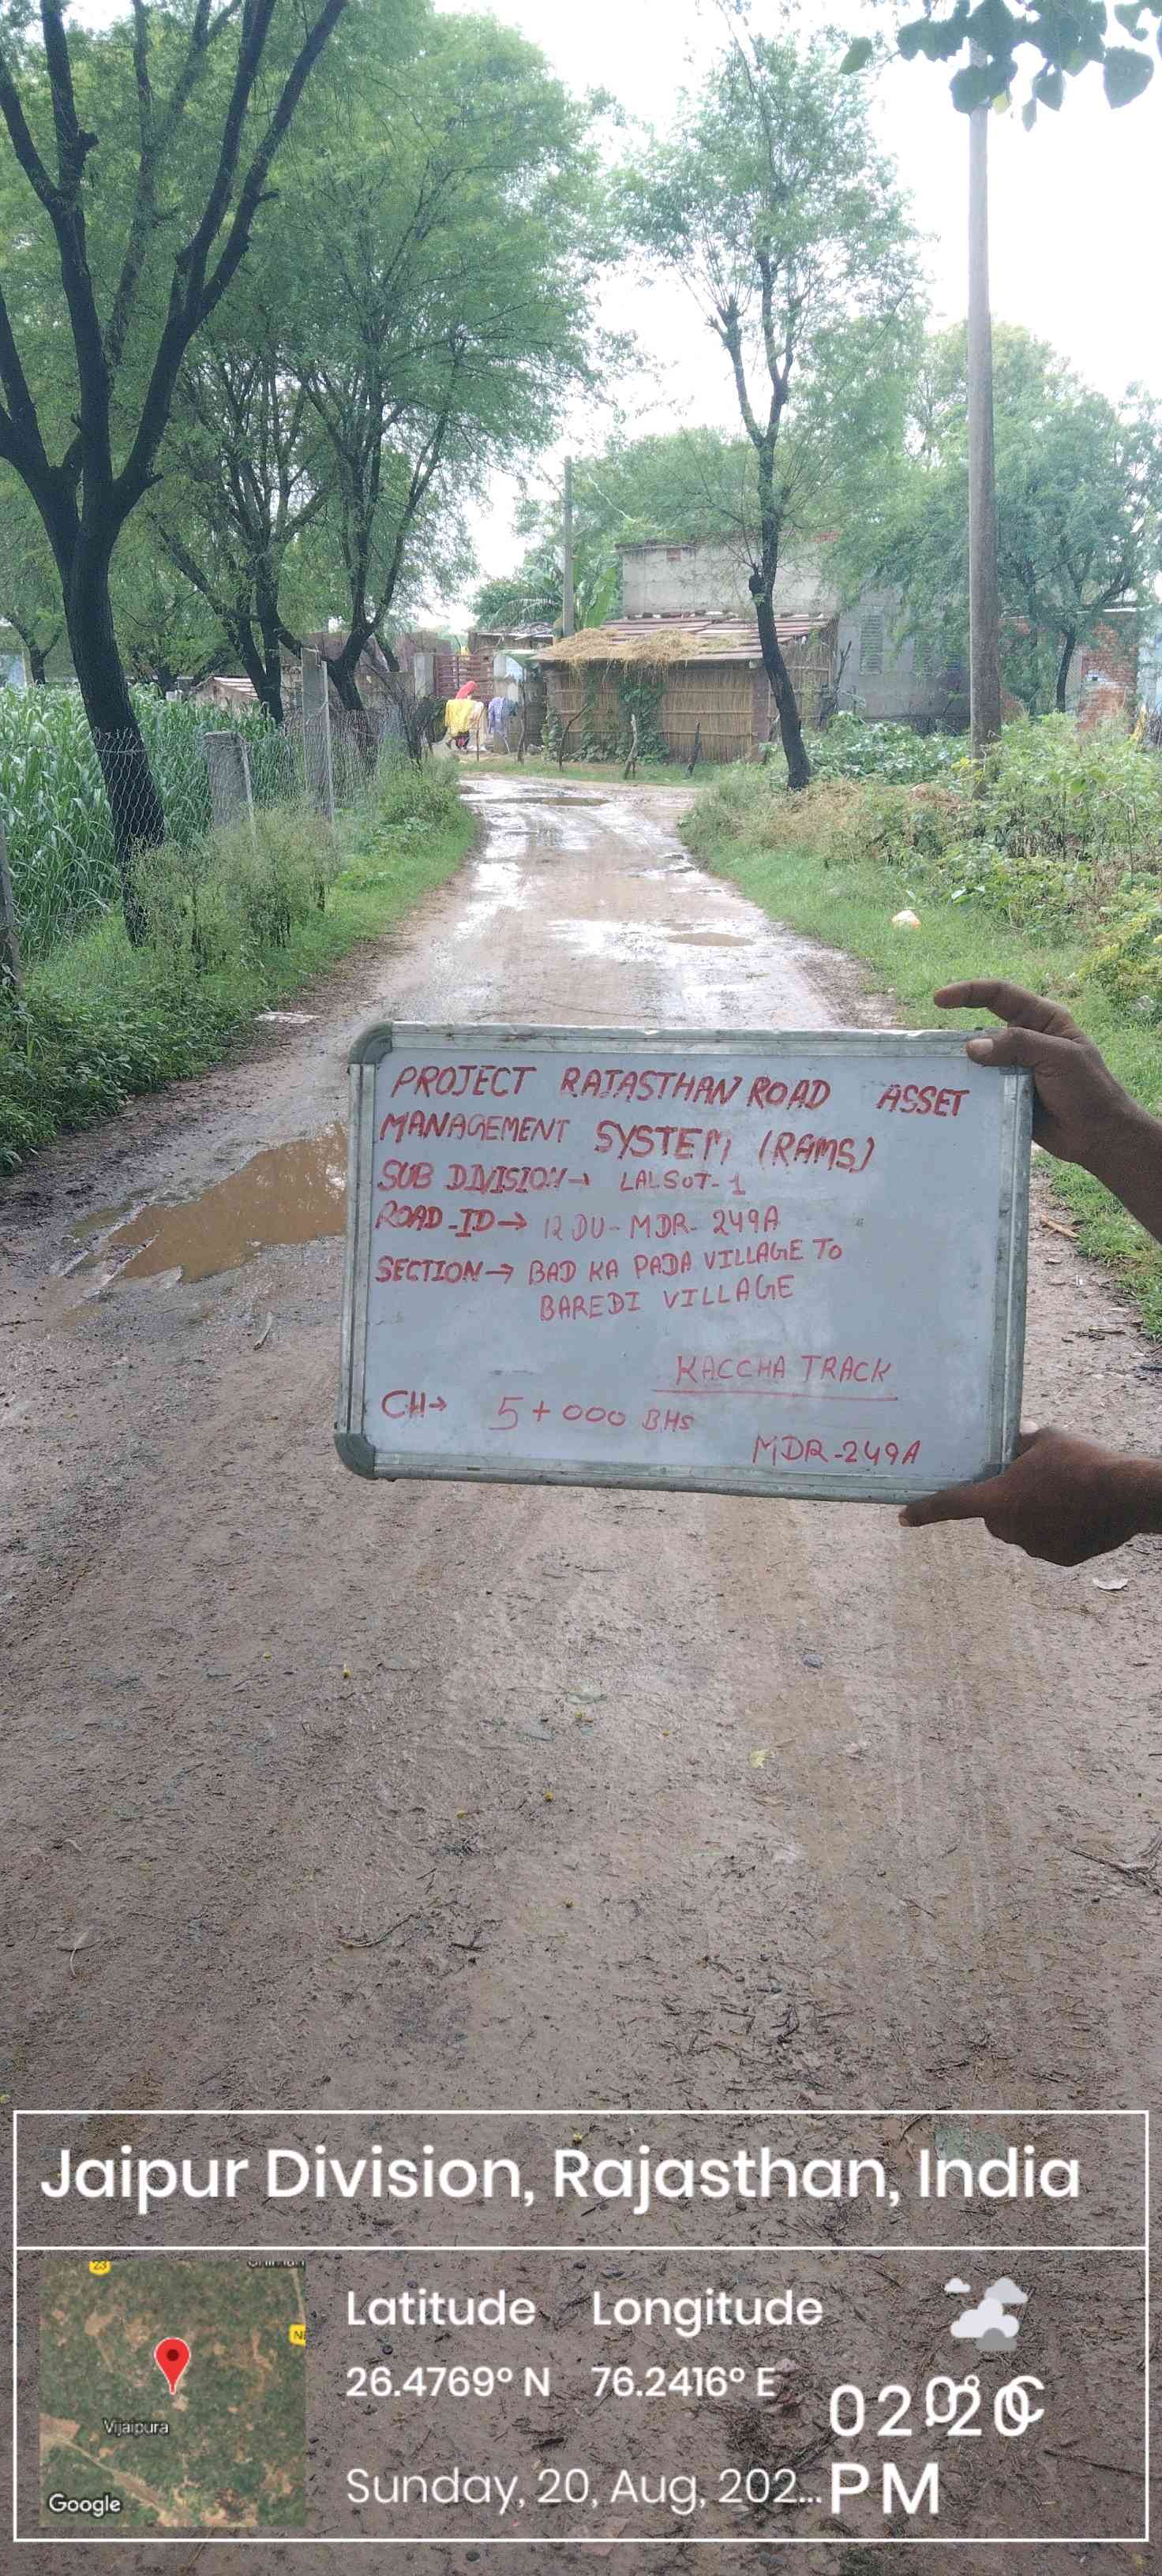 PROJECT RAJASTHAN ROAD ASSET
MANAGEMENT SYSTEM (RAMS)
SUB DIVISION→ LALSOT-1
ROAD-ID→ 12DU-MDR-249A
SECTION→ BAD KA PADA VILLAGE TO
BAREDI VILLAGE
KACCHA TRACK
CH→ 5+000 BHS
MDR-249A
Jaipur Division, Rajasthan, India
23
Vijaipura
Google
Latitude Longitude
26.4769° N 76.2416° E
Sunday, 20, Aug, 202...
PM